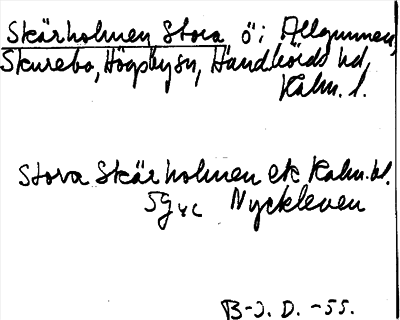 Skärholmen Stora ö i Allgunnen,
Skurebo, Högsby sn, Handbörds hd,
Kalm. l.
Stora Skärholmen ek Kalm. bl.
5g Nyckleven
B-J. D. -55.